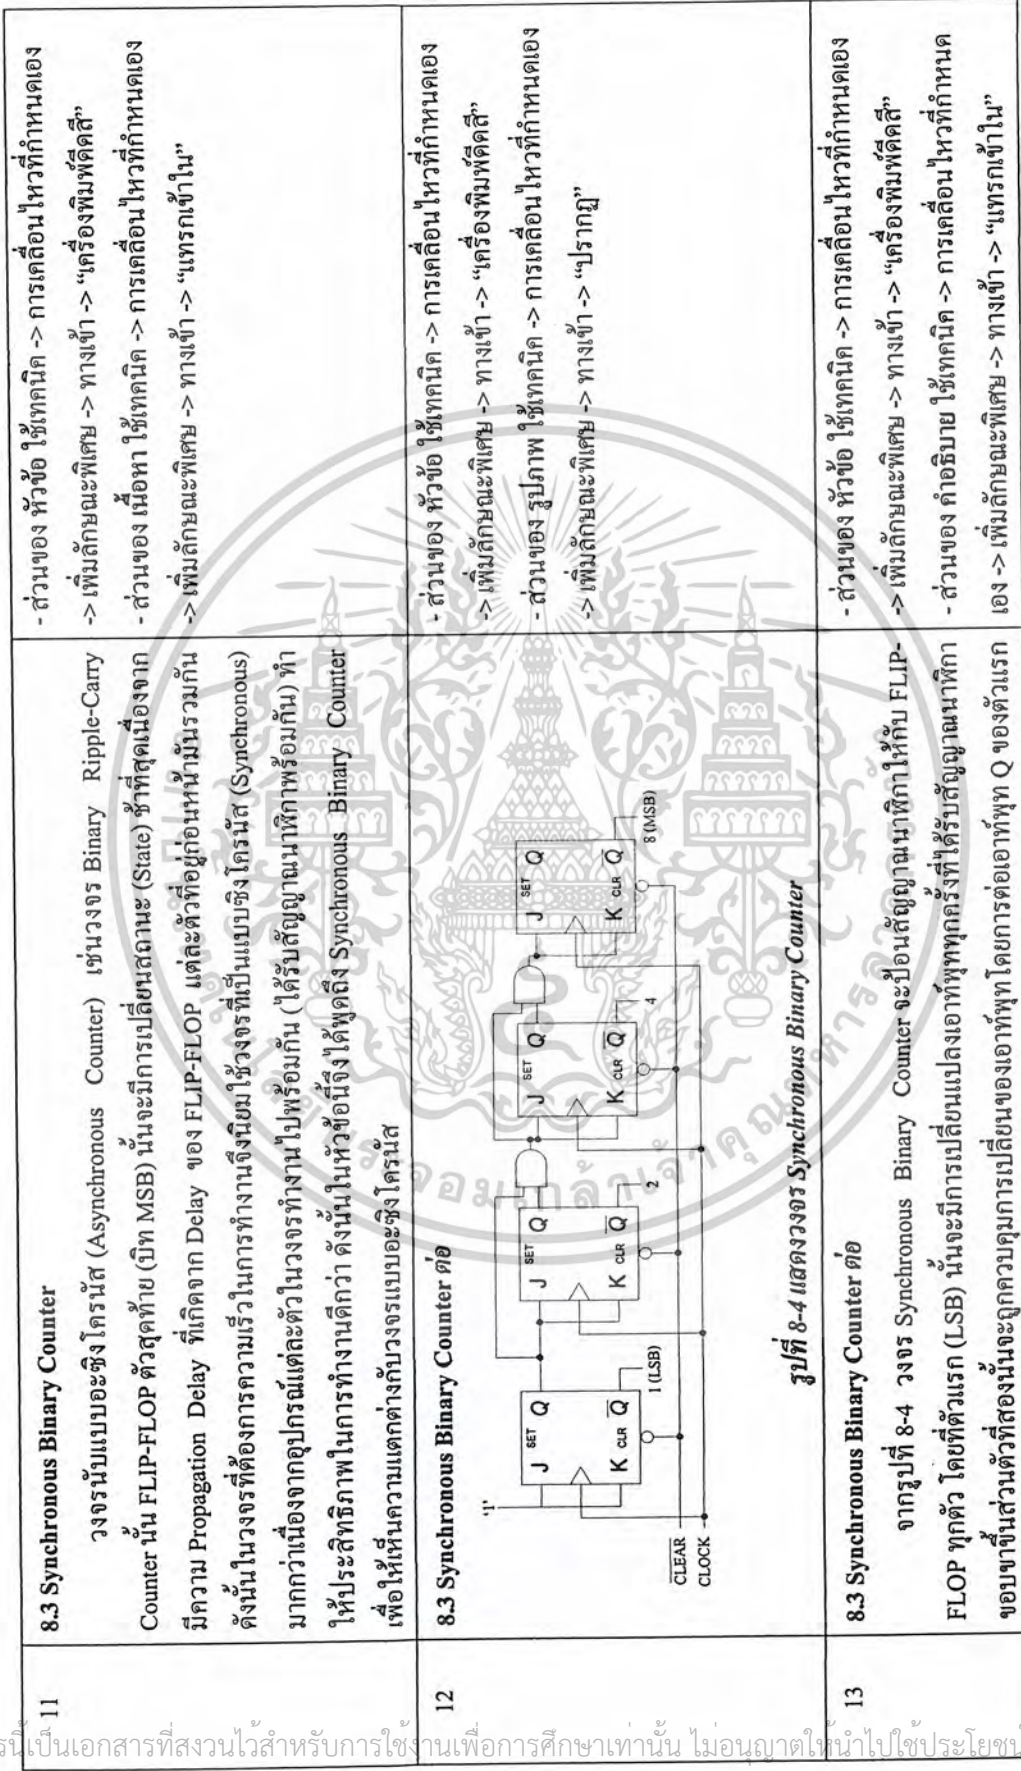 11
8.3 Synchronous Binary Counter
วงจรนับแบบอะซิงโครนัส (Asynchronous Counter) เช่นวงจร Binary Ripple-Carry
Counter นั้น FLIP-FLOP ตัวสุดท้าย (บิท MSB) นั้นจะมีการเปลี่ยนสถานะ (State) ช้าที่สุดเนื่องจาก
มีความ Propagation Delay ที่เกิดจาก Delay ของ FLIP-FLOP แต่ละตัวที่อยู่ก่อนหน้ามันรวมกัน
ดังนั้นในวงจรที่ต้องการความเร็วในการทำงานจึงนิยมใช้วงจรที่เป็นแบบซิงโครนัส (Synchronous)
มากกว่าเนื่องจากอุปกรณ์แต่ละตัวในวงจรทำงานไปพร้อมกัน (ได้รับสัญญาณนาฬิกาพร้อมกัน) ทำ
ให้ประสิทธิภาพในการทำงานดีกว่า ดังนั้นในหัวข้อนี้จึงได้พูดถึง Synchronous Binary Counter
เพื่อให้เห็นความแตกต่างกับวงจรแบบอะซิงโครนัส
- ส่วนของ หัวข้อ ใช้เทคนิค -> การเคลื่อนไหวที่กำหนดเอง
-> เพิ่มลักษณะพิเศษ -> ทางเข้า -> “เครื่องพิมพ์ดีดสี”
- ส่วนของ เนื้อหา ใช้เทคนิค -> การเคลื่อนไหวที่กำหนดเอง
-> เพิ่มลักษณะพิเศษ -> ทางเข้า -> “แทรกเข้าใน”
12
8.3 Synchronous Binary Counter ต่อ
'1'
J SET Q
K CLR Q
1 (LSB)
J SET Q
K CLR Q
2
J SET Q
K CLR Q
4
J SET Q
K CLR Q
8 (MSB)
CLEAR
CLOCK
รูปที่ 8-4 แสดงวงจร Synchronous Binary Counter
- ส่วนของ หัวข้อ ใช้เทคนิค -> การเคลื่อนไหวที่กำหนดเอง
-> เพิ่มลักษณะพิเศษ -> ทางเข้า -> “เครื่องพิมพ์ดีดสี”
- ส่วนของ รูปภาพ ใช้เทคนิค -> การเคลื่อนไหวที่กำหนดเอง
-> เพิ่มลักษณะพิเศษ -> ทางเข้า -> “ปรากฏ”
13
8.3 Synchronous Binary Counter ต่อ
จากรูปที่ 8-4 วงจร Synchronous Binary Counter จะป้อนสัญญาณนาฬิกาให้กับ FLIP-
FLOP ทุกตัว โดยที่ตัวแรก (LSB) นั้นจะมีการเปลี่ยนแปลงเอาท์พุททุกครั้งที่ได้รับสัญญาณนาฬิกา
ขอบขาขึ้นส่วนตัวที่สองนั้นจะถูกควบคุมการเปลี่ยนของเอาท์พุทโดยการต่อเอาท์พุท Q ของตัวแรก
- ส่วนของ หัวข้อ ใช้เทคนิค -> การเคลื่อนไหวที่กำหนดเอง
-> เพิ่มลักษณะพิเศษ -> ทางเข้า -> “เครื่องพิมพ์ดีดสี”
- ส่วนของ คำอธิบาย ใช้เทคนิค -> การเคลื่อนไหวที่กำหนด
เอง -> เพิ่มลักษณะพิเศษ -> ทางเข้า -> “แทรกเข้าใน”
เป็นเอกสารที่สงวนไว้สำหรับการใช้งานเพื่อการศึกษาเท่านั้น ไม่อนุญาตให้นำไปใช้ประโยชน์